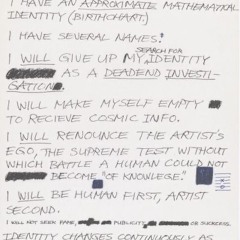 I HAVE AN APPROXIMATE MATHEMATICAL
IDENTITY (BIRTHCHART).
I HAVE SEVERAL NAMES.
SEARCH FOR
I WILL GIVE UP MY IDENTITY
AS A DEADEND INVESTI-
GATION.
I WILL MAKE MYSELF EMPTY
TO RECIEVE COSMIC INFO.
I WILL RENOUNCE THE ARTIST'S
EGO, THE SUPREME TEST WITHOUT
WHICH BATTLE A HUMAN COULD NOT
BECOME "OF KNOWLEDGE."
I WILL BE HUMAN FIRST, ARTIST
SECOND.
I WILL NOT SEEK FAME, PUBLICITY OR SUCCESS.
IDENTITY CHANGES CONTINUOUSLY AS